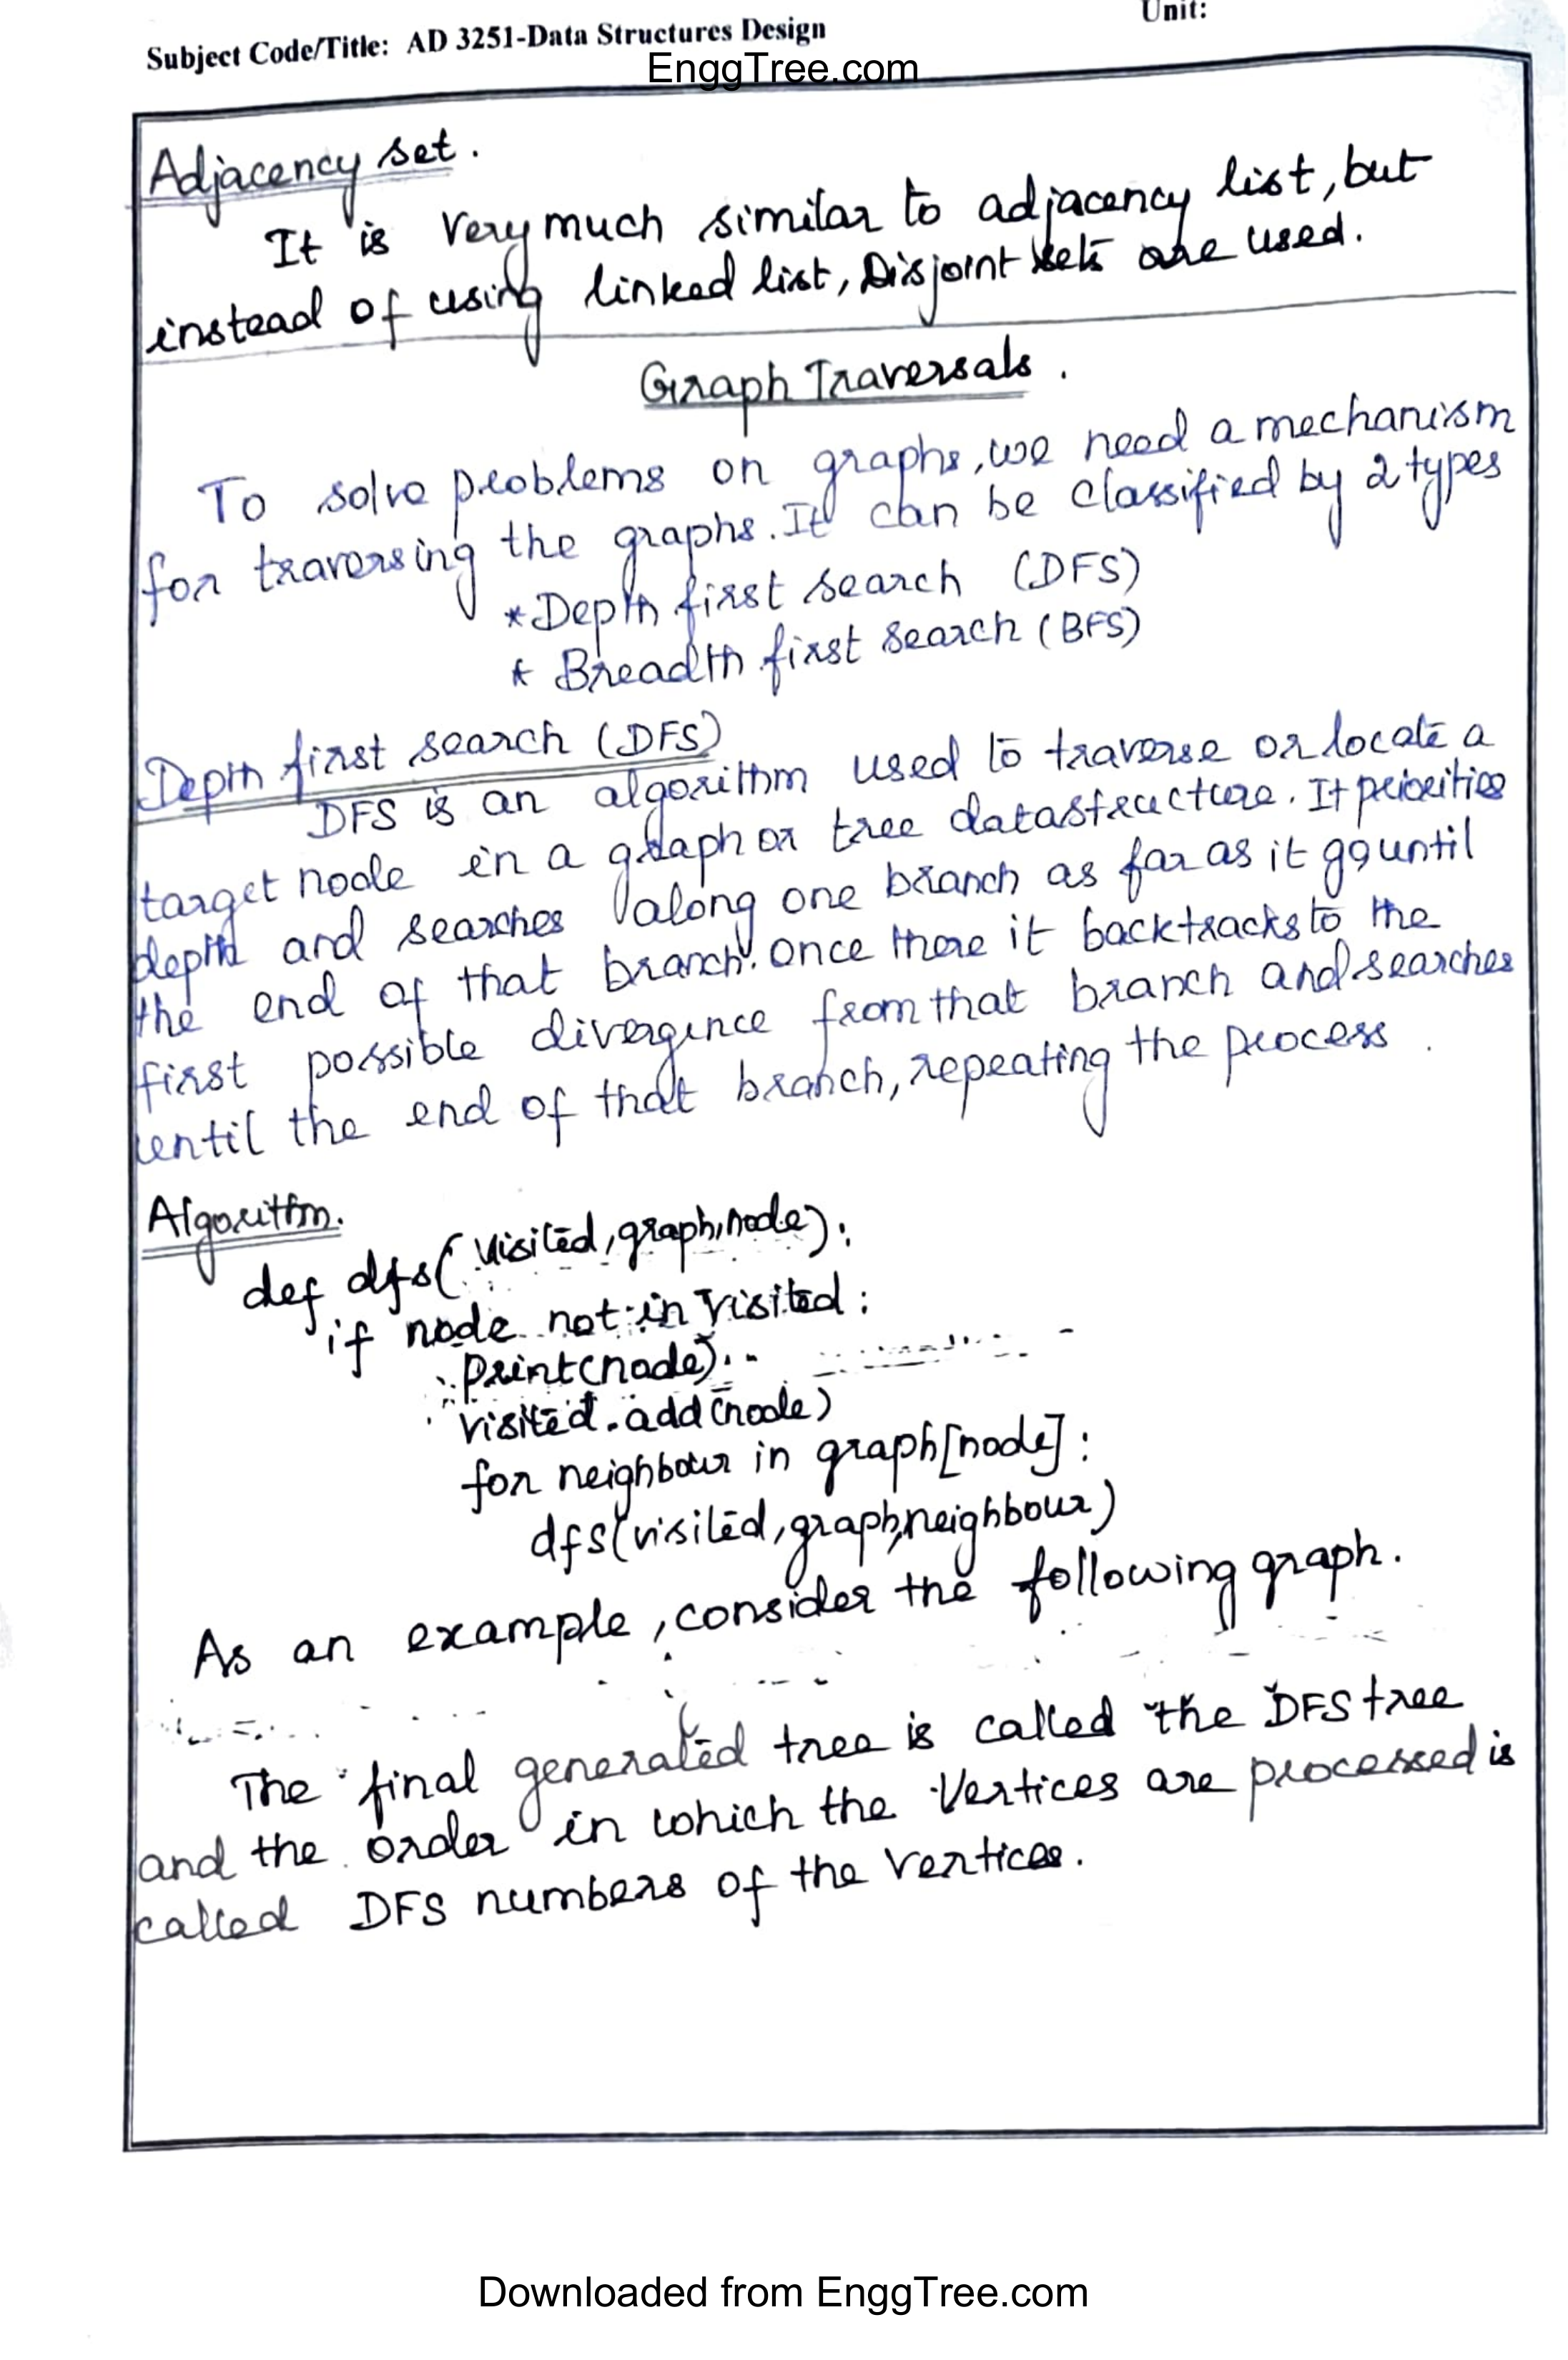 Unit:
Subject Code/Title: AD 3251-Data Structures Design
EnggTree.com
Adjacency set.
It is very much similar to adjacency list, but
instead of using linked list, Disjoint sets are used.
Graph Traversals.
To solve problems on graphs, we need a mechanism
for traversing the graphs. It can be classified by 2 types
* Depth first search (DFS)
* Breadth first search (BFS)
Depth first search (DFS)
DFS is an algorithm used to traverse or locate a
target node in a graph or tree datastructure. It priorities
depth and searches along one branch as far as it go until
the end of that branch. Once there it backtracks to the
first possible divergence from that branch and searches
until the end of that branch, repeating the process.
Algorithm.
def dfs(visited, graph, node):
if node not in visited:
print(node).
visited.add(node)
for neighbour in graph[node]:
dfs(visited, graph, neighbour)
As an example, consider the following graph.
The final generated tree is called the DFS tree
and the order in which the vertices are processed is
called DFS numbers of the vertices.
Downloaded from EnggTree.com